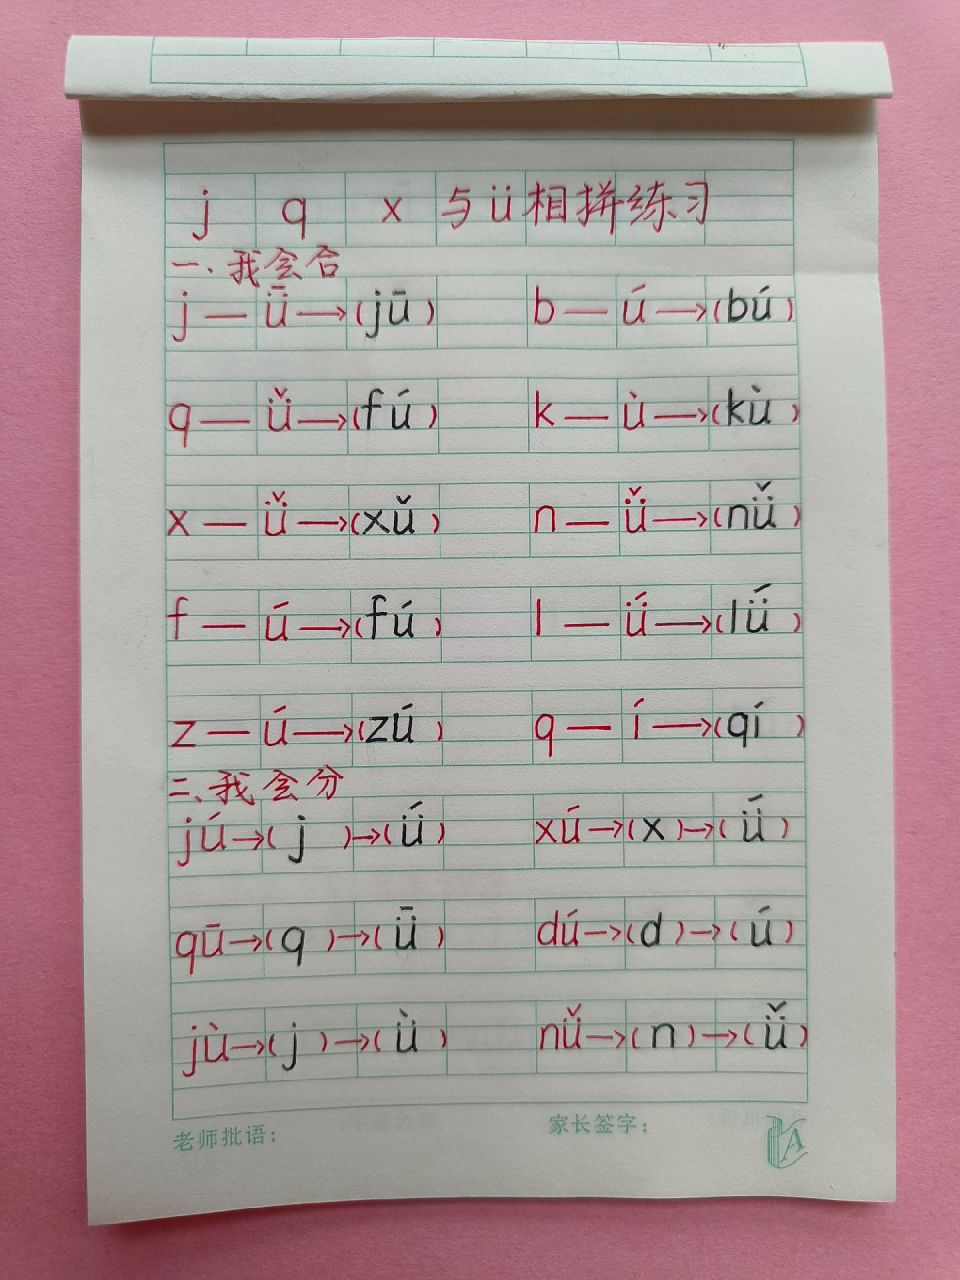 j q x 与ü相拼练习
一、我会合
j — ǖ → (jū) b — ú → (bú)
q — ǚ → (fú) k — ù → (kù)
x — ǚ → (xǔ) n — ǚ → (nǚ)
f — ú → (fú) l — ǘ → (lǘ)
z — ú → (zú) q — í → (qí)
二、我会分
jú → (j) → (ǘ) xú → (x) → (ǘ)
qū → (q) → (ǖ) dú → (d) → (ú)
jù → (j) → (ǜ) nǚ → (n) → (ǚ)
老师批语: 家长签字:
A